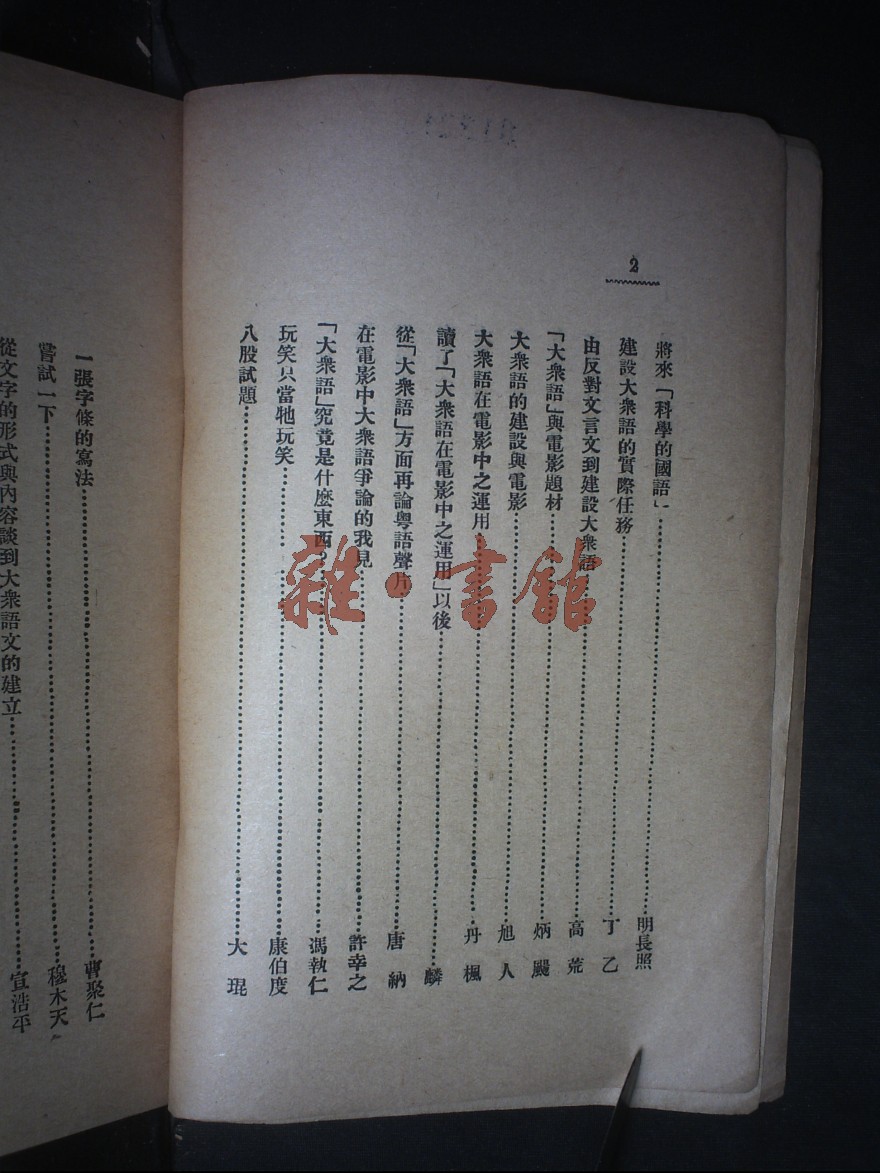 2
將來「科學的國語」……明長照
建設大衆語的實際任務……丁乙
由反對文言文到建設大衆語……高荒
「大衆語」與電影題材……炳颺
大衆語的建設與電影……旭人
大衆語在電影中之運用……丹楓
讀了「大衆語在電影中之運用」以後……麟
從「大衆語」方面再論粤語聲片……唐納
在電影中大衆語爭論的我見……許幸之
「大衆語」究竟是什麼東西?……馮執仁
玩笑只當牠玩笑……康伯度
八股試題……大琨
一張字條的寫法……曹聚仁
嘗試一下……穆木天
從文字的形式與內容談到大衆語文的建立……宣浩平
雜·書館